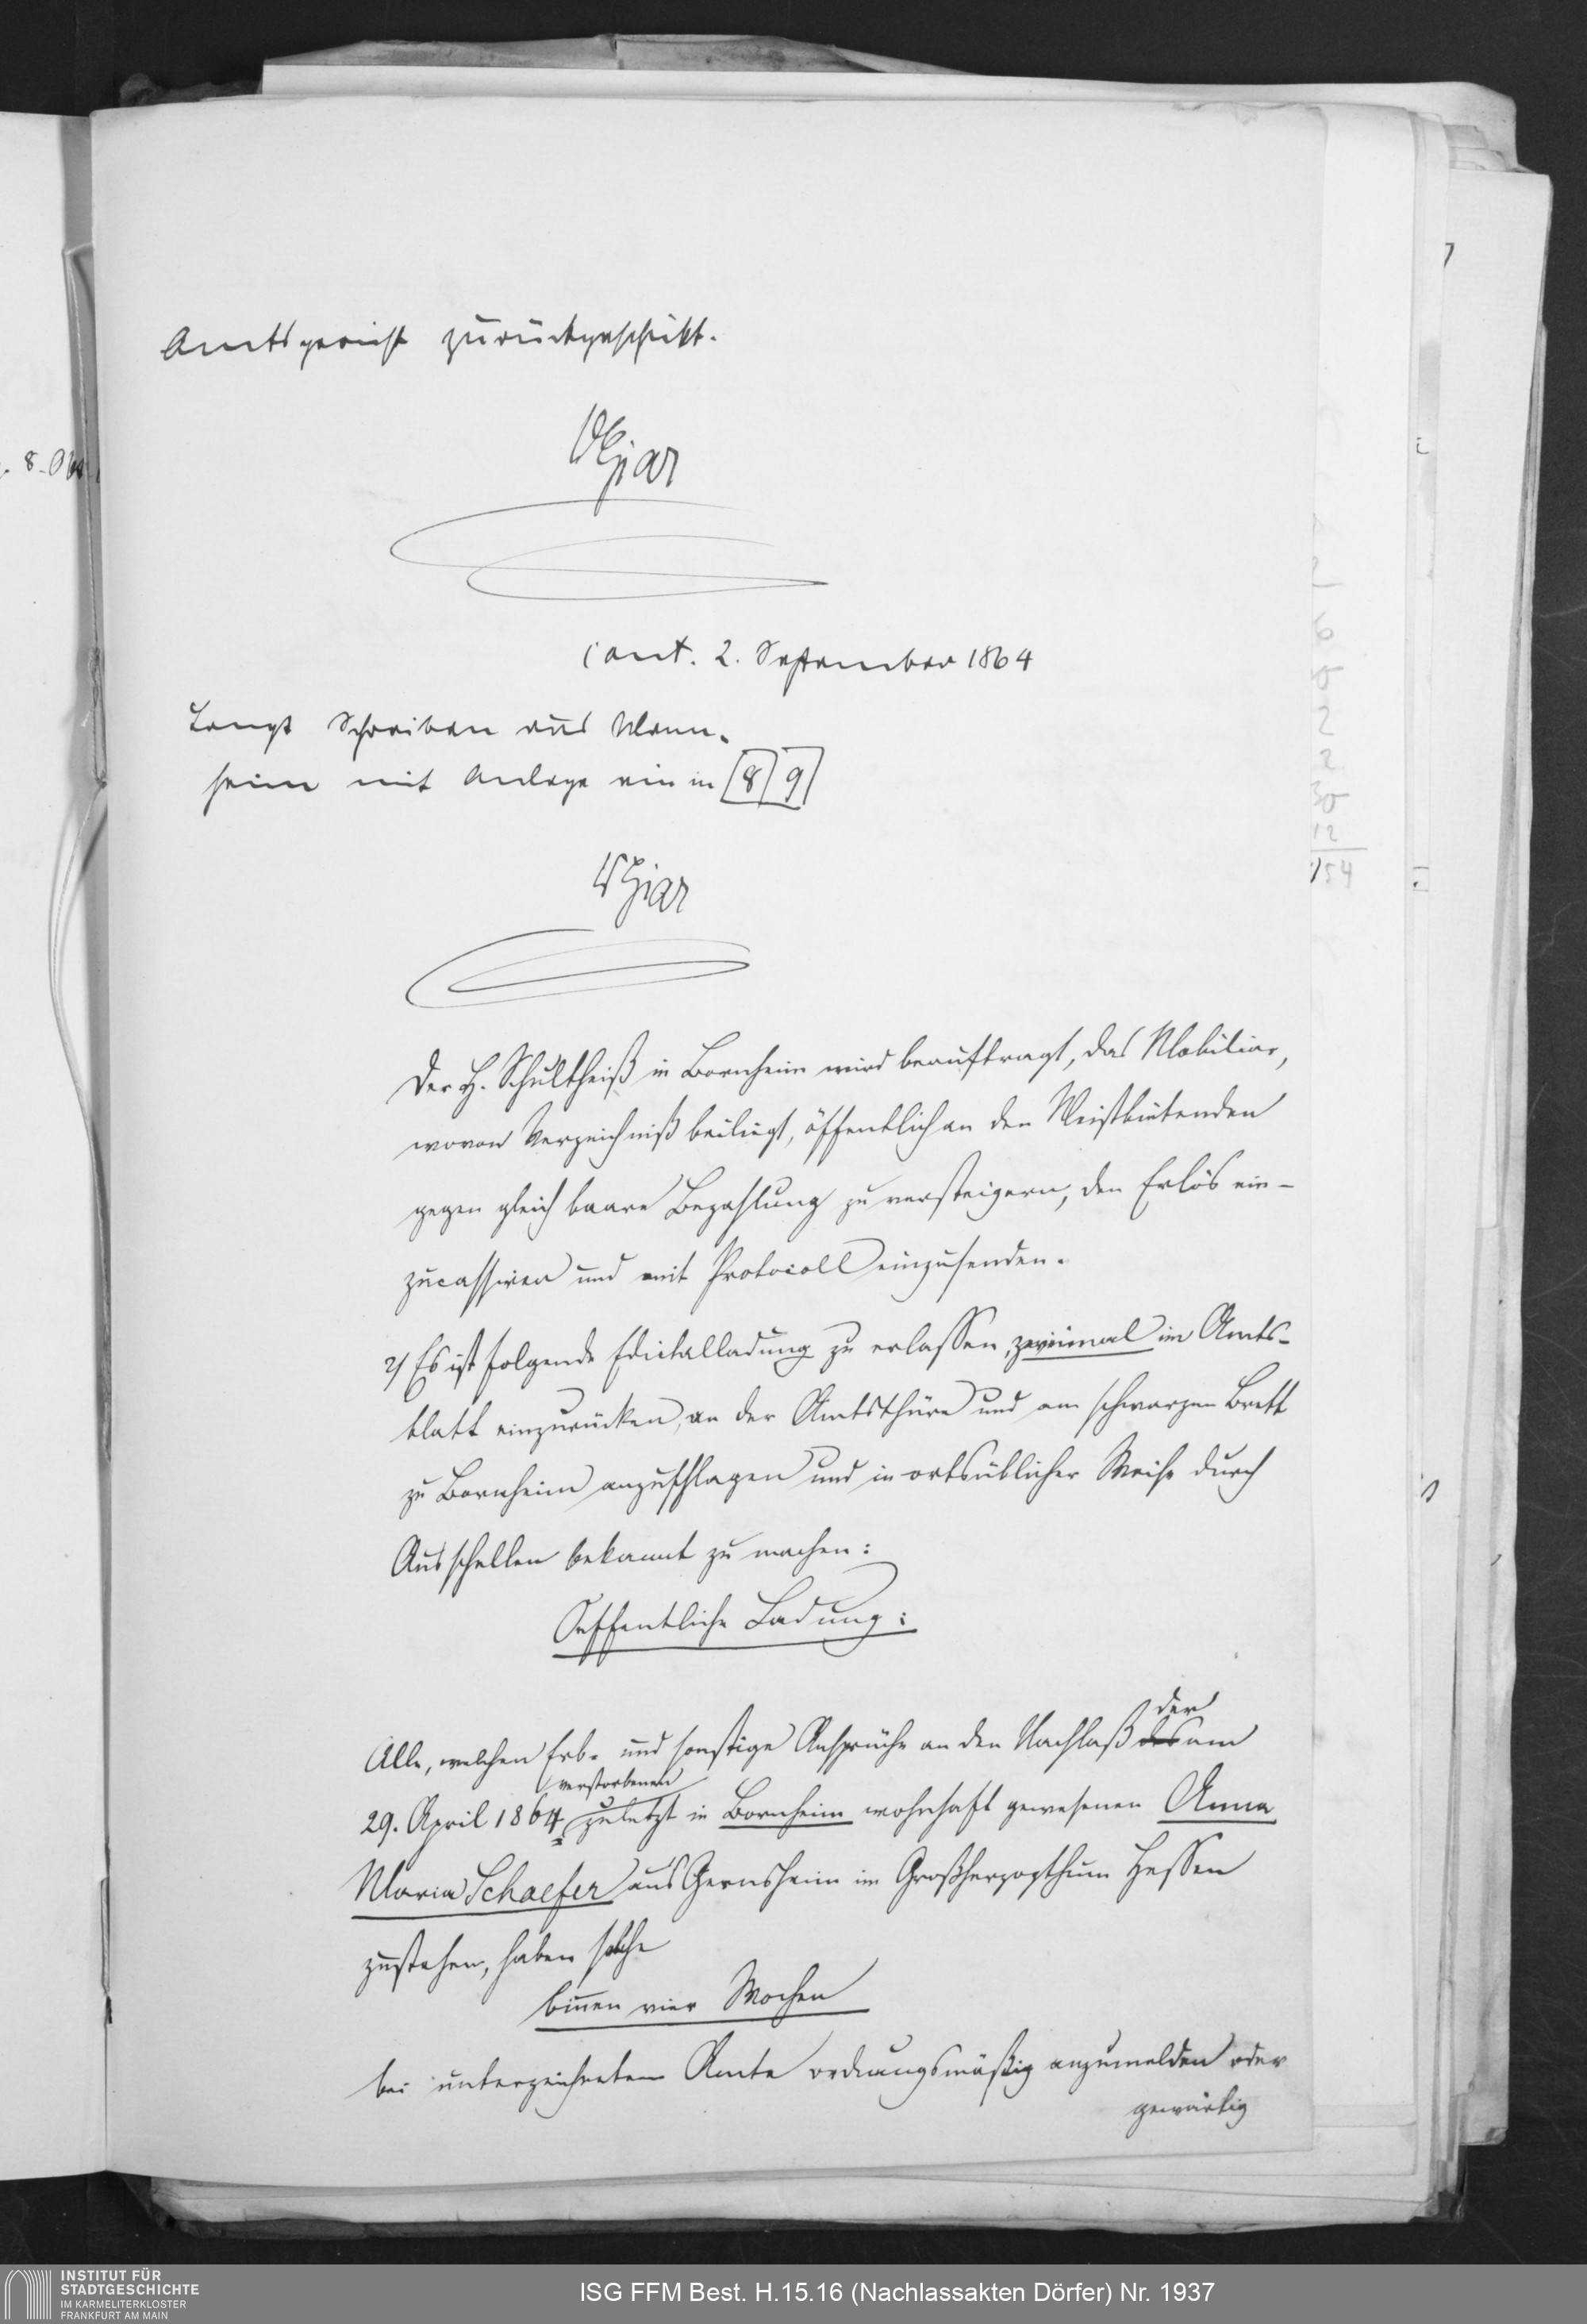 Amtsgericht zurückgeschickt.
cont. 2. September 1864
Langt Schreiben aus Mann-
heim mit Anlage ein in 8 9
Der H. Schultheiß in Bornheim wird beauftragt, das Mobiliar,
wovon Verzeichniß beiliegt, öffentlich an den Meistbietenden
gegen gleich baare Bezahlung zu versteigern, den Erlös ein-
zucassiren und mit Protocoll einzusenden.
2/ Es ist folgende Edictalladung zu erlassen, zweimal im Amts-
blatt einzurücken, an der Amtsthüre und am schwarzen Brett
zu Bornheim anzuschlagen und in ortsüblicher Weise durch
Ausschellen bekannt zu machen:
Oeffentliche Ladung:
der
Alle, welchen Erb- und sonstige Ansprüche an den Nachlaß des am
verstorbenen
29. April 1864 zuletzt in Bornheim wohnhaft gewesenen Anna
Maria Schaefer aus Gernsheim im Großherzogthum Hessen
zustehen, haben solche
binnen vier Wochen
bei unterzeichnetem Amte ordnungsmäßig anzumelden oder
gewärtig
6
2
2
30
12
154
INSTITUT FÜR
STADTGESCHICHTE
IM KARMELITERKLOSTER
FRANKFURT AM MAIN
ISG FFM Best. H.15.16 (Nachlassakten Dörfer) Nr. 1937